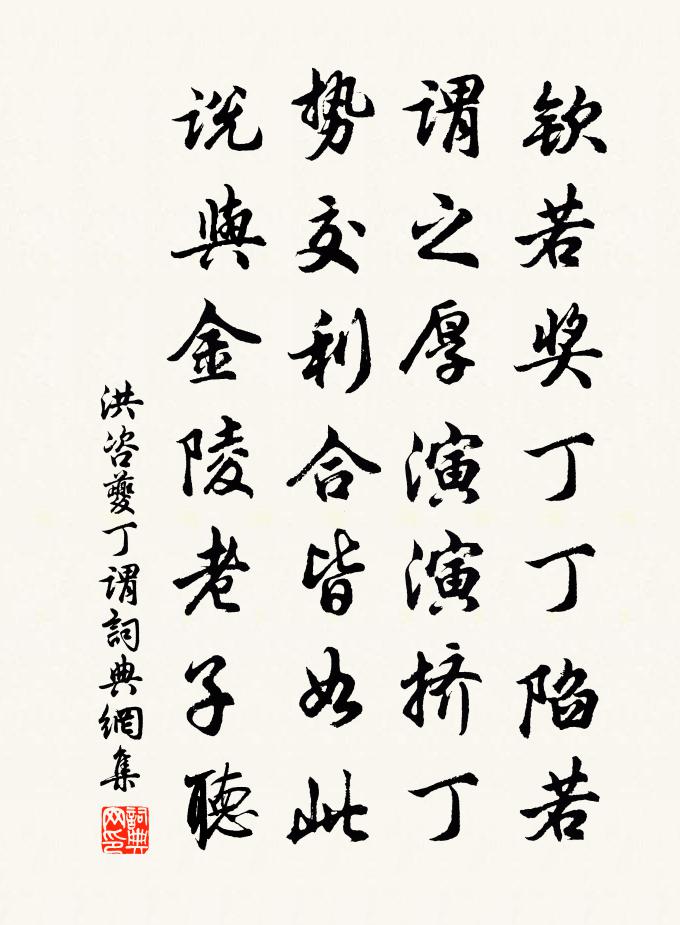 钦若奖丁丁陷若
谓之厚演演挤丁
势交利合皆如此
说與金陵老子聽
洪咨夔丁谓詞典網集
詞典网印